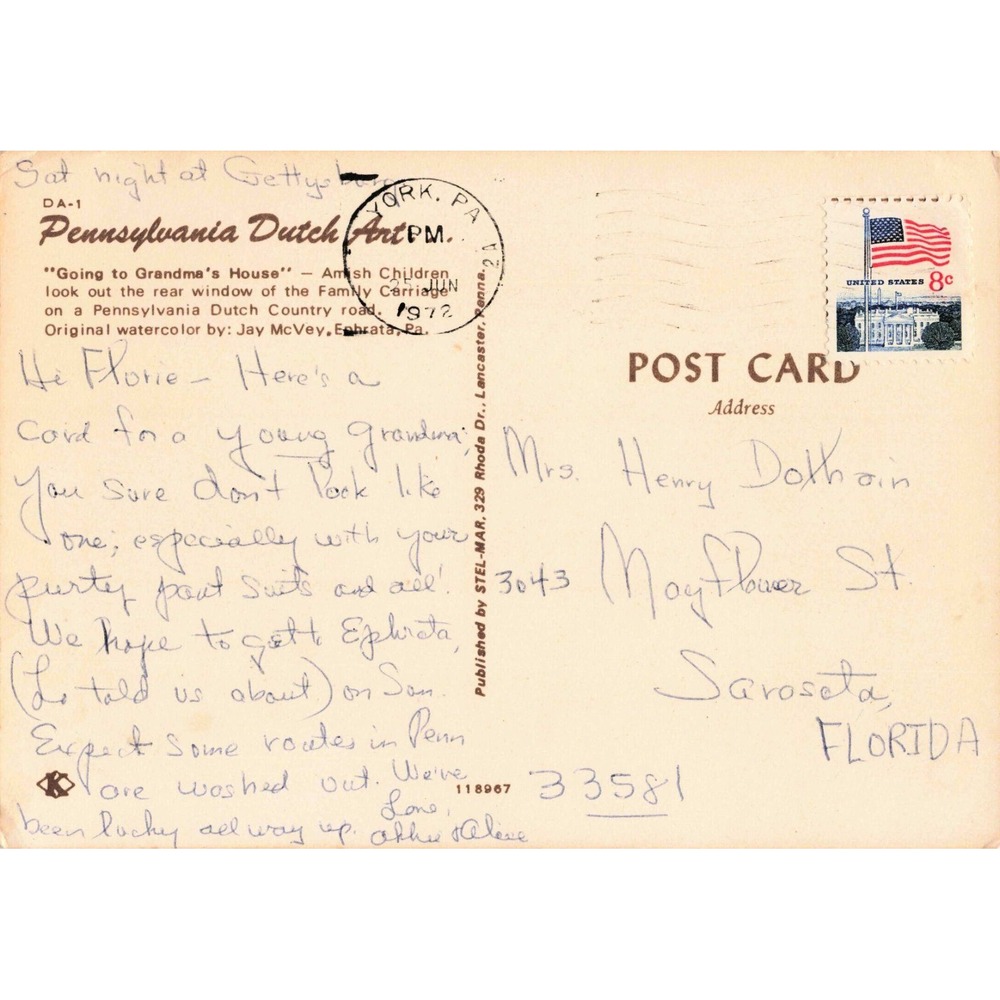 Sat night at Gettysburg
DA-1
Pennsylvania Dutch Art
"Going to Grandma's House" — Amish Children
look out the rear window of the Family Carriage
on a Pennsylvania Dutch Country road.
Original watercolor by: Jay McVey, Ephrata, Pa.
YORK, PA
PM
25 JUN
1972
UNITED STATES 8c
POST CARD
Address
Hi Florie – Here's a
card for a young grandma;
You sure don't look like
one; especially with your
purty pant suits and all!
We hope to get to Ephrata,
(Lo told us about) on Sun.
Expect some routes in Penn
are washed out. We've
been lucky all way up.
Love,
& Alice
Published by STEL-MAR, 329 Rhoda Dr., Lancaster, Penna.
K
118967
Mrs. Henry
3043 Mayflower St.
Sarasota,
FLORIDA
33581